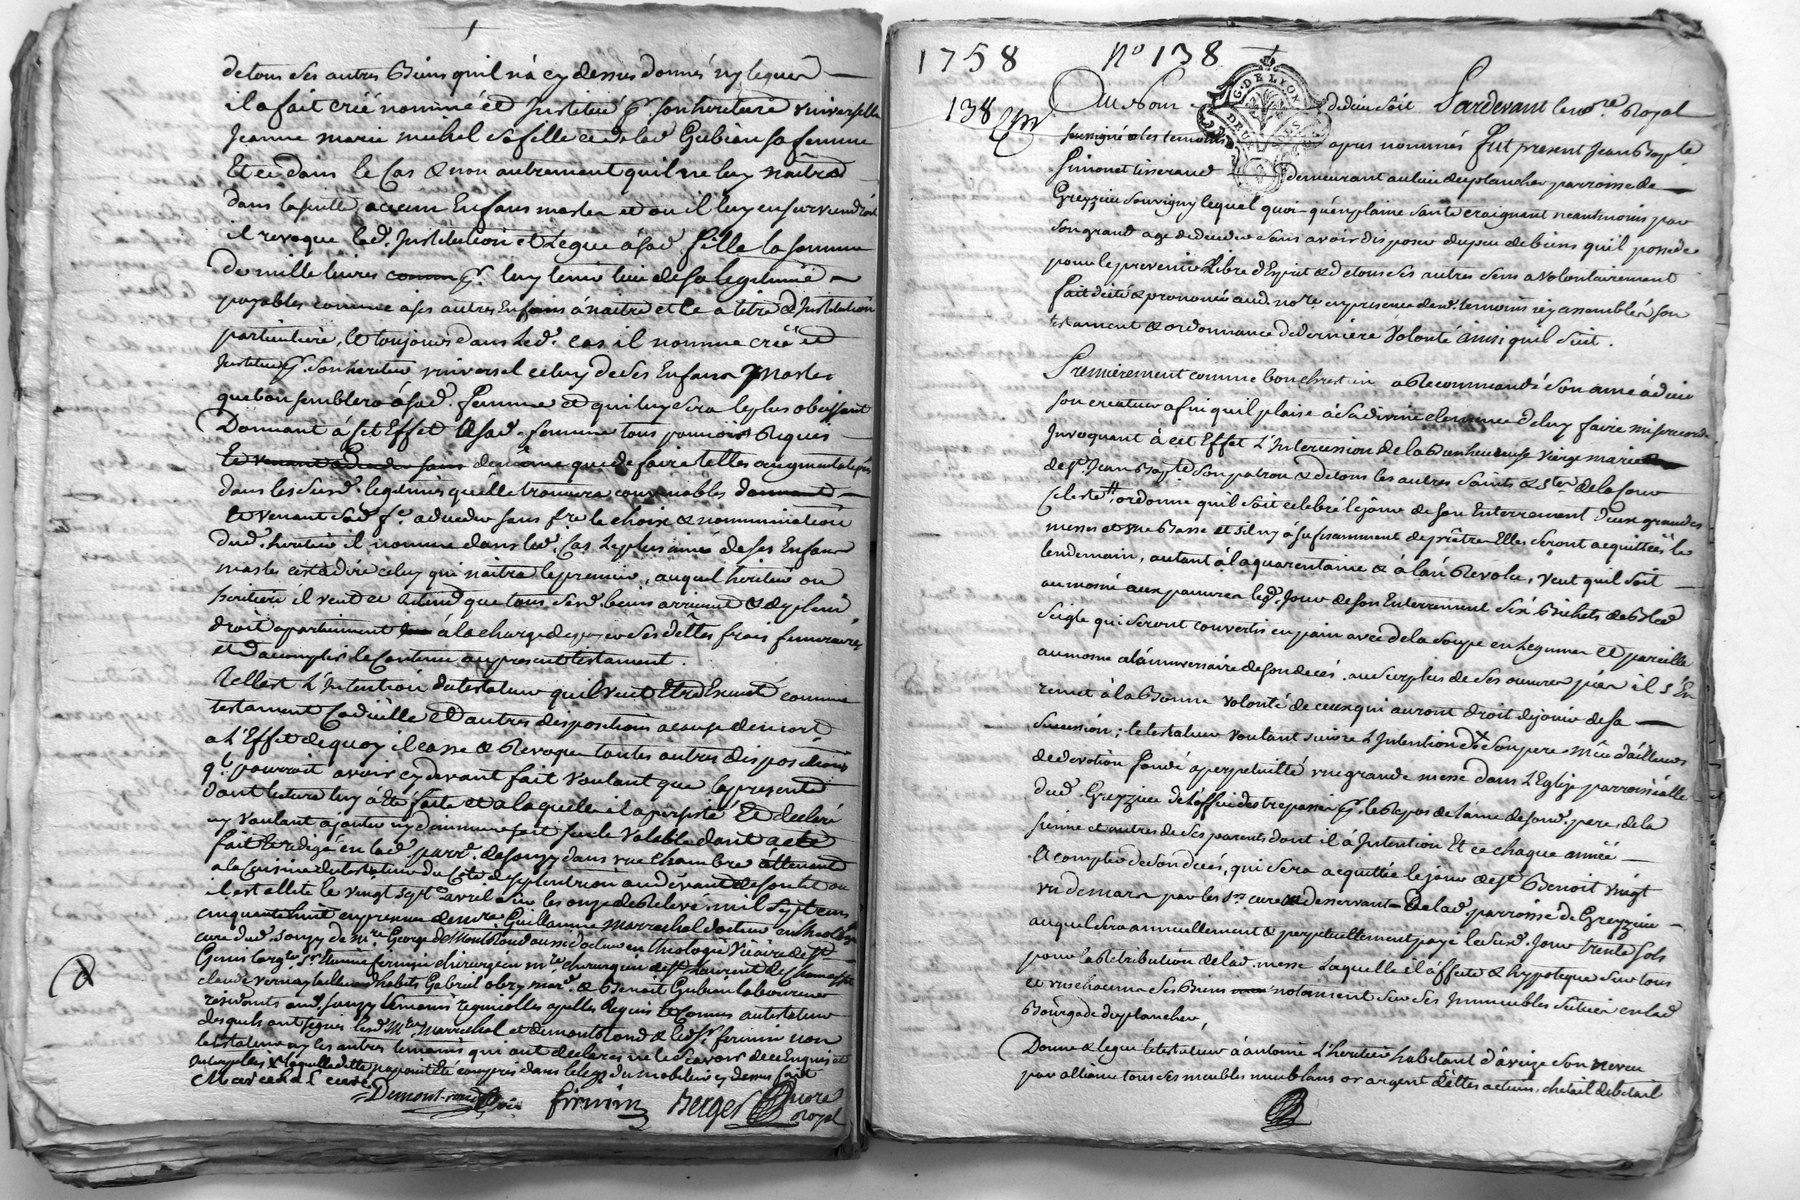 de tous ses autres Biens quil n'a cy dessus donnés ny legués
il a fait créé nommé et Institué pr. son heritiere universelle
Jeanne marie michel sa fille et de lad. Gubian sa femme
Et ce dans le Cas & non autrement quil ne luy naitrad
dans la suitte aucun Enfans masles et ou il luy en surviendroit
il revoque lad. Institution et Legue à sad. fille la somme
de mille livres pr. luy tenir lieu de sa legitime
payables comme a ses autres Enfans à naitre et ce a titre d'Institution
particuliere, et toujours dans led. cas il nomme créé et
Institue pr. son heritier universel celuy de ses Enfans masles
que bon semblera à sad. femme et qui luy sera le plus obeissant
Donnant à cet Effet à sad. femme tous pouvoirs Requis
de même que de faire telles augmentations
dans les susd. legitimes quelle trouvera convenables
Et venant sad. fe. a deceder sans fre. le choix & nommination
dud. heritier il nomme dans led. Cas le plus ainé de ses Enfans
masles cestadire celuy qui naitra le premier, auquel heritier ou
heritiere il veut et entend que tous sesd. biens arrivent & de plein
droit apartiennent à la charge de payer ses dettes frais funeraires
et d'accomplir le Contenu au present testament.
Telle est L'Intention du testateur quil veut Etre Executé comme
testament Codicille et autres dispositions a cause de mort
a L'Effet de quoy il casse & Revoque toutes autres dispositions
ql. pourroit avoir cy devant fait voulant que la presente
dont lecture luy a été faite et a laquelle il a persisté Et declaré
ny vouloir ajouter ny diminuer soit seule valable dont acte
fait et redigé en lad. parr. de souzy dans une chambre attenant
a la Cuisine du testateur du Coté de septentrion au devant de
il est allité le vingt sept avril a sur les onze de Relevé mil sept cens
cinquante huit en presence de mre. Guillaume Marrechal docteur en theologie
curé dud. souzy de mre. George de Montrond aussi docteur en theologie Vicaire de St.
Genis Largre. sr. Etienne fermin chirurgien mre. chirurgien de St. Laurent de chamousset
claude vernay tailleur d'habits Gabriel obry mar. & Benoit Gubian laboureur
residents aud. souzy temoins regnicolles apellés Requis Et connus au testateur
desquels ont signés lesd. Mres Marrechal et demontrond & led. sr. fermin non
le testateur ny les autres temoins qui ont declarés ne le savoir de ce Enquis et
Marrechal curé
Demont-rond vic. fermin Berger Nore
Royal
1758 No 138
138
GDE LION
DEUX S
Au Nom de dieu soit Pardevant le nore. Royal
soussigné & les temoins apres nommés fut present Jean Bapte.
Simonet tisserand demeurant au lieu du plancher parroisse de
Greyzieu Souvigny lequel quoi-qu'en plaine santé craignant neantmoins par
son grand age de deceder sans avoir disposer du peu de biens qu'il possede
pour le prevenir Libre d'Esprit & de tous ses autres sens a volontairement
fait dicté & prononcé aud. nore. en presence desd. temoins icy assemblés son
testament & ordonnance de derniere Volonté ainsi quil suit.
Premierement comme bon chrestien a Recommandé son ame à dieu
son createur afin quil plaise à sa divine clemence de luy faire misericorde
Invoquant à cet Effet L'Intercession de la Bienheureuse Vierge marie
de St. Jean Bapte. son patron & de tous les autres Saints & stes. de la Cour
Celeste, ordonne qu'il soit celebré le jour de son Enterrement deux grandes
messes et une Basse et sil n'y à suffisamment de prêtres Elles seront acquittées le
lendemain, autant à la quarentaine & à l'an Revolu, veut quil soit
aumosné aux pauvres led. Jour de son Enterrement six Bichets de Bled
seigle qui seront convertis en pain avec de la soupe en Legumes Et pareille
aumosne à l'anniversaire de son decés. au surplus de ses oeuvres pies il s'En
remet à la Bonne volonté de ceux qui auront droit de jouir de sa
succession; le testateur voulant suivre L'Intention de son pere mû d'ailleurs
de devotion fonde à perpetuité une grande messe dans L'Eglise parroissialle
dud. Greyzieu de L'office des trepassés pr. le Repos de l'ame de sond. pere, de la
sienne et autres de ses parents dont il à Intention Et ce chaque année
A compter de son decés, qui sera acquittée le jour de St. Benoit vingt
un de mars par les srs. curé ou desservant de lad. parroisse de Greyzieu
auquel sera annuellement & perpetuellement payé le susd. Jour trente sols
pour la Retribution de lad. messe Laquelle il affecte & hypoteque sur tous
et un chacuns ses Biens notamment sur ses Immeubles situés en lad.
Bourgade du plancher,
Donne & legue le testateur à antoine L'heritier habitant d'aveize son neveu
par alliance tous ses meubles meublans or argent dettes actives, chetail debetail